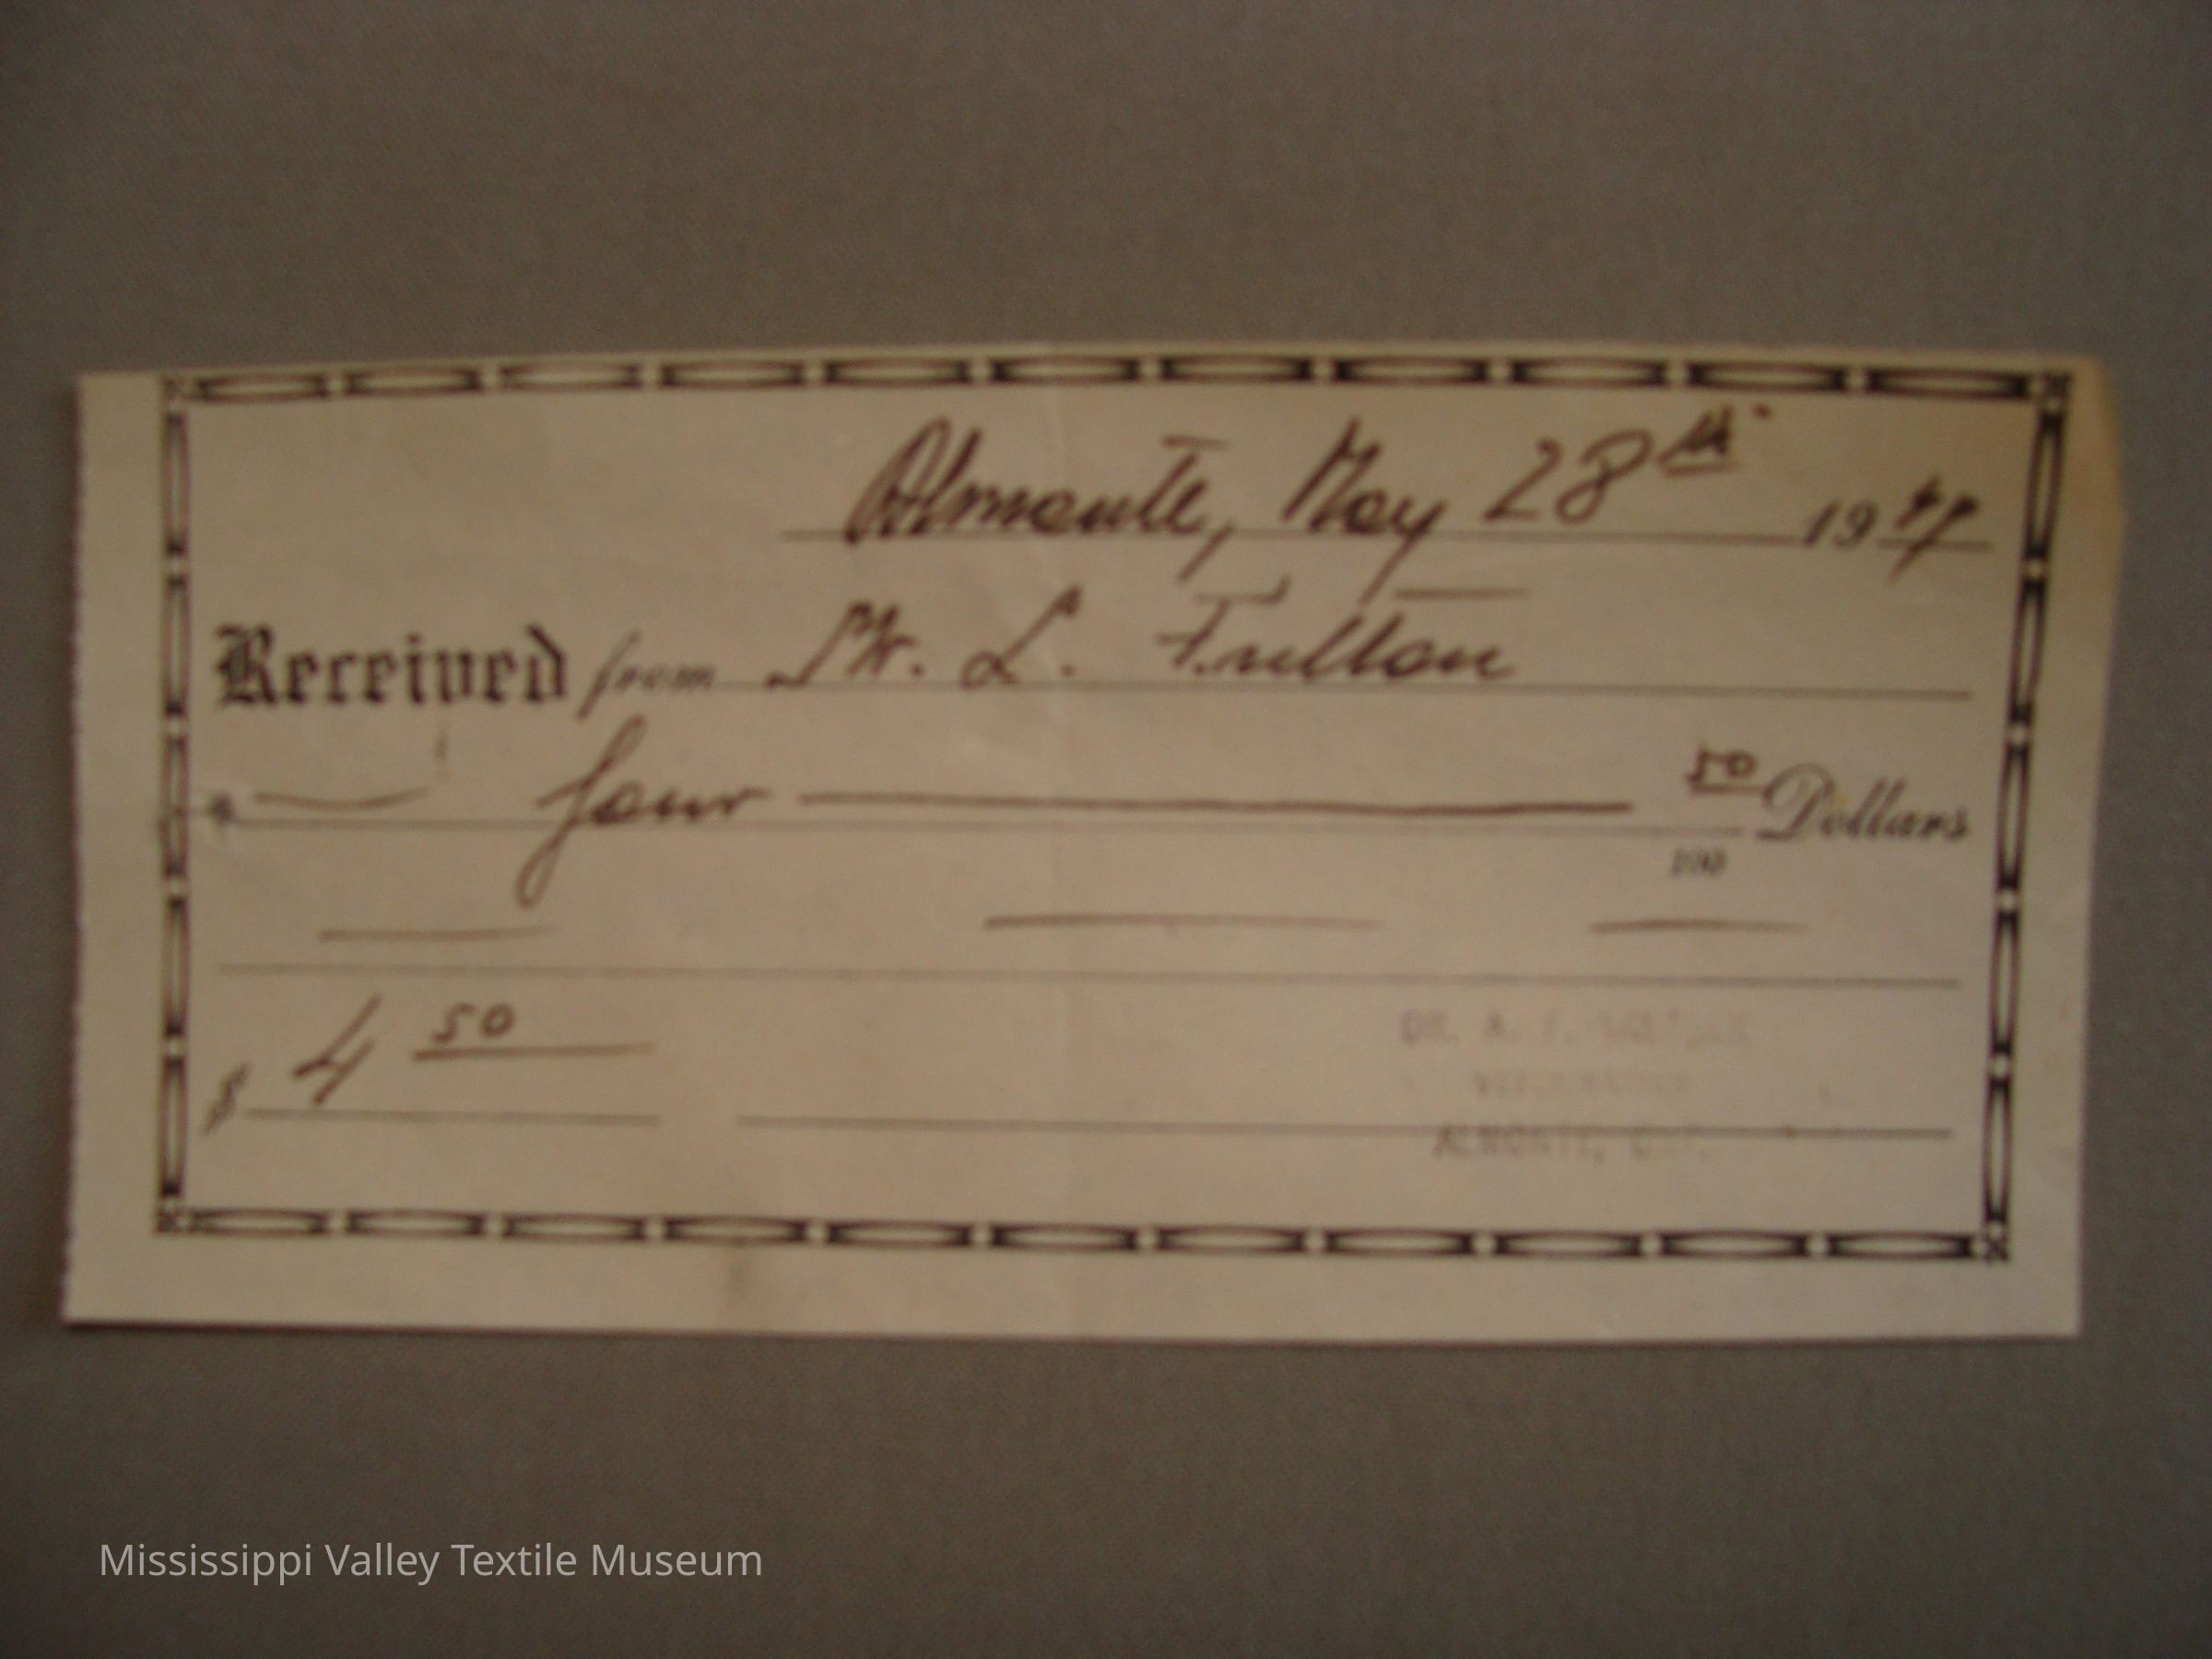 Almonte, May 28th 1947
Received from W. L. Fulton
four 50 Dollars
100
$ 4 50
DR. A. F.
ALMONTE,
Mississippi Valley Textile Museum